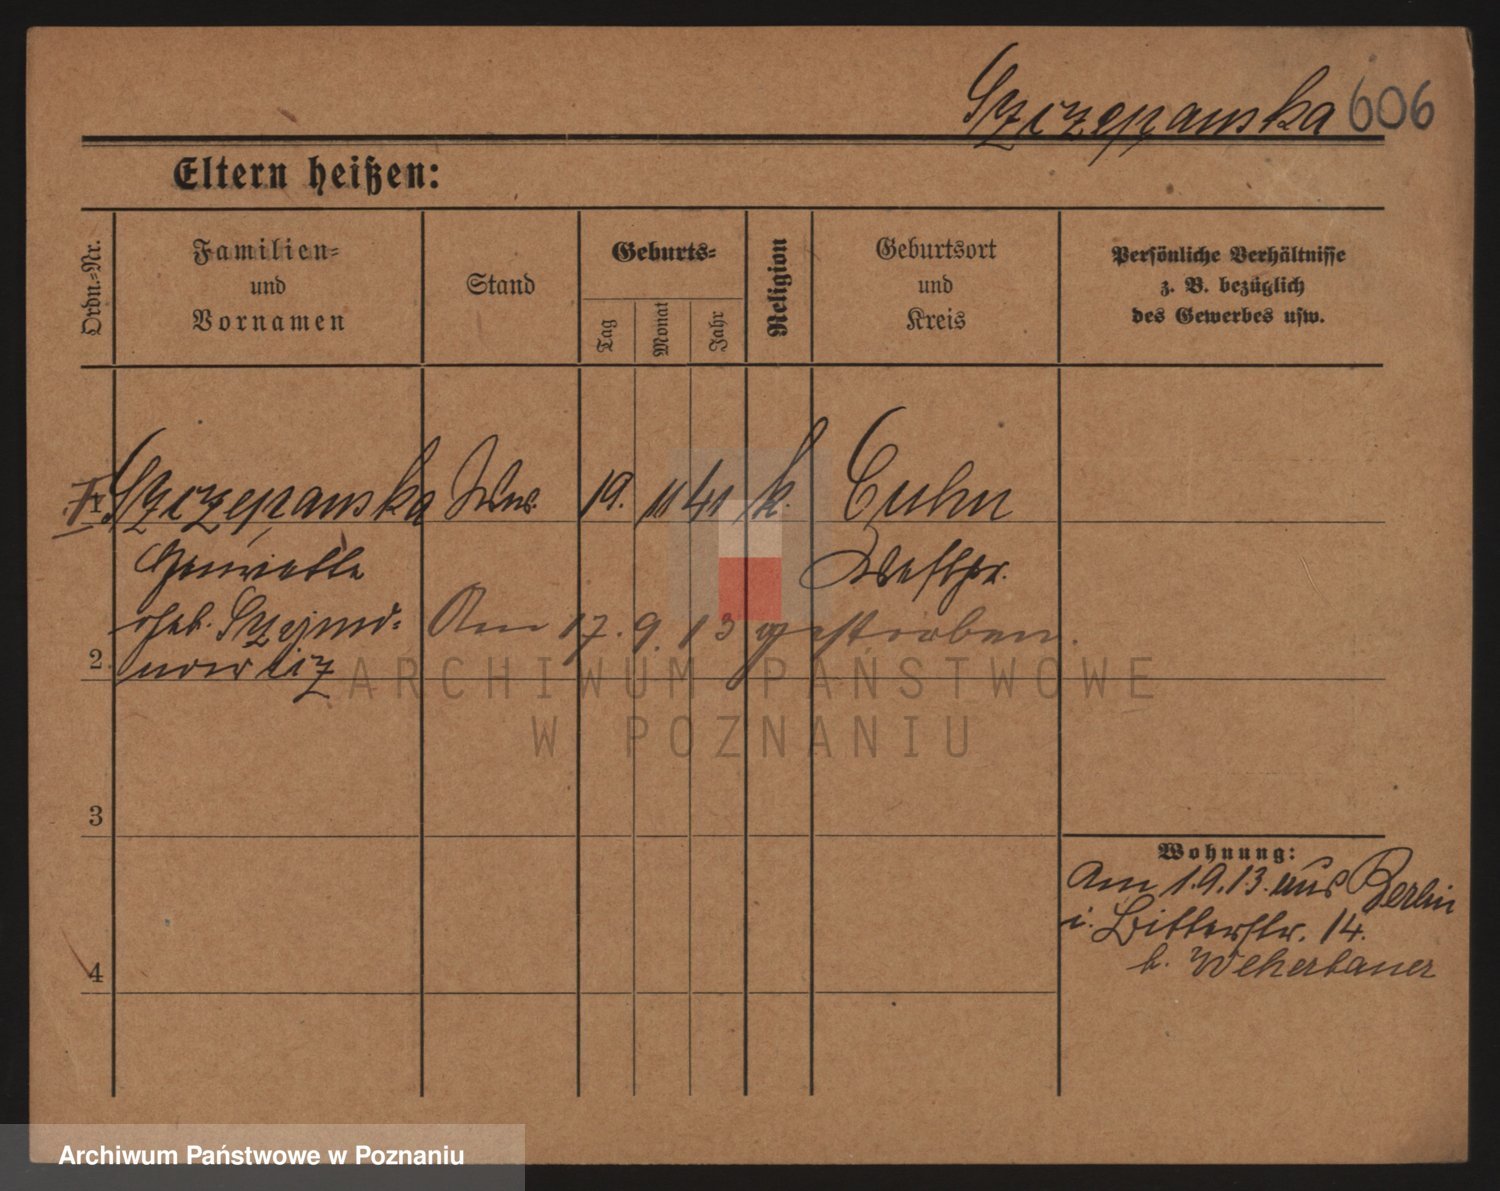 Szczepanska 606
Eltern heißen:
Ordn.-Nr.
Familien-
und
Vornamen
Stand
Geburts-
Tag
Monat
Jahr
Religion
Geburtsort
und
Kreis
Persönliche Verhältnisse
z. B. bezüglich
des Gewerbes usw.
1 Szczepanska Ww. 19. 11 41 k. Culm
Henriette Westpr.
Am 17. 9. 13 gestorben.
2
3
4
Wohnung:
Am 1.9.13. aus Berlin
i. Bitterstr. 14.
b. Wekerbauer
ARCHIWUM PAŃSTWOWE
W POZNANIU
Archiwum Państwowe w Poznaniu